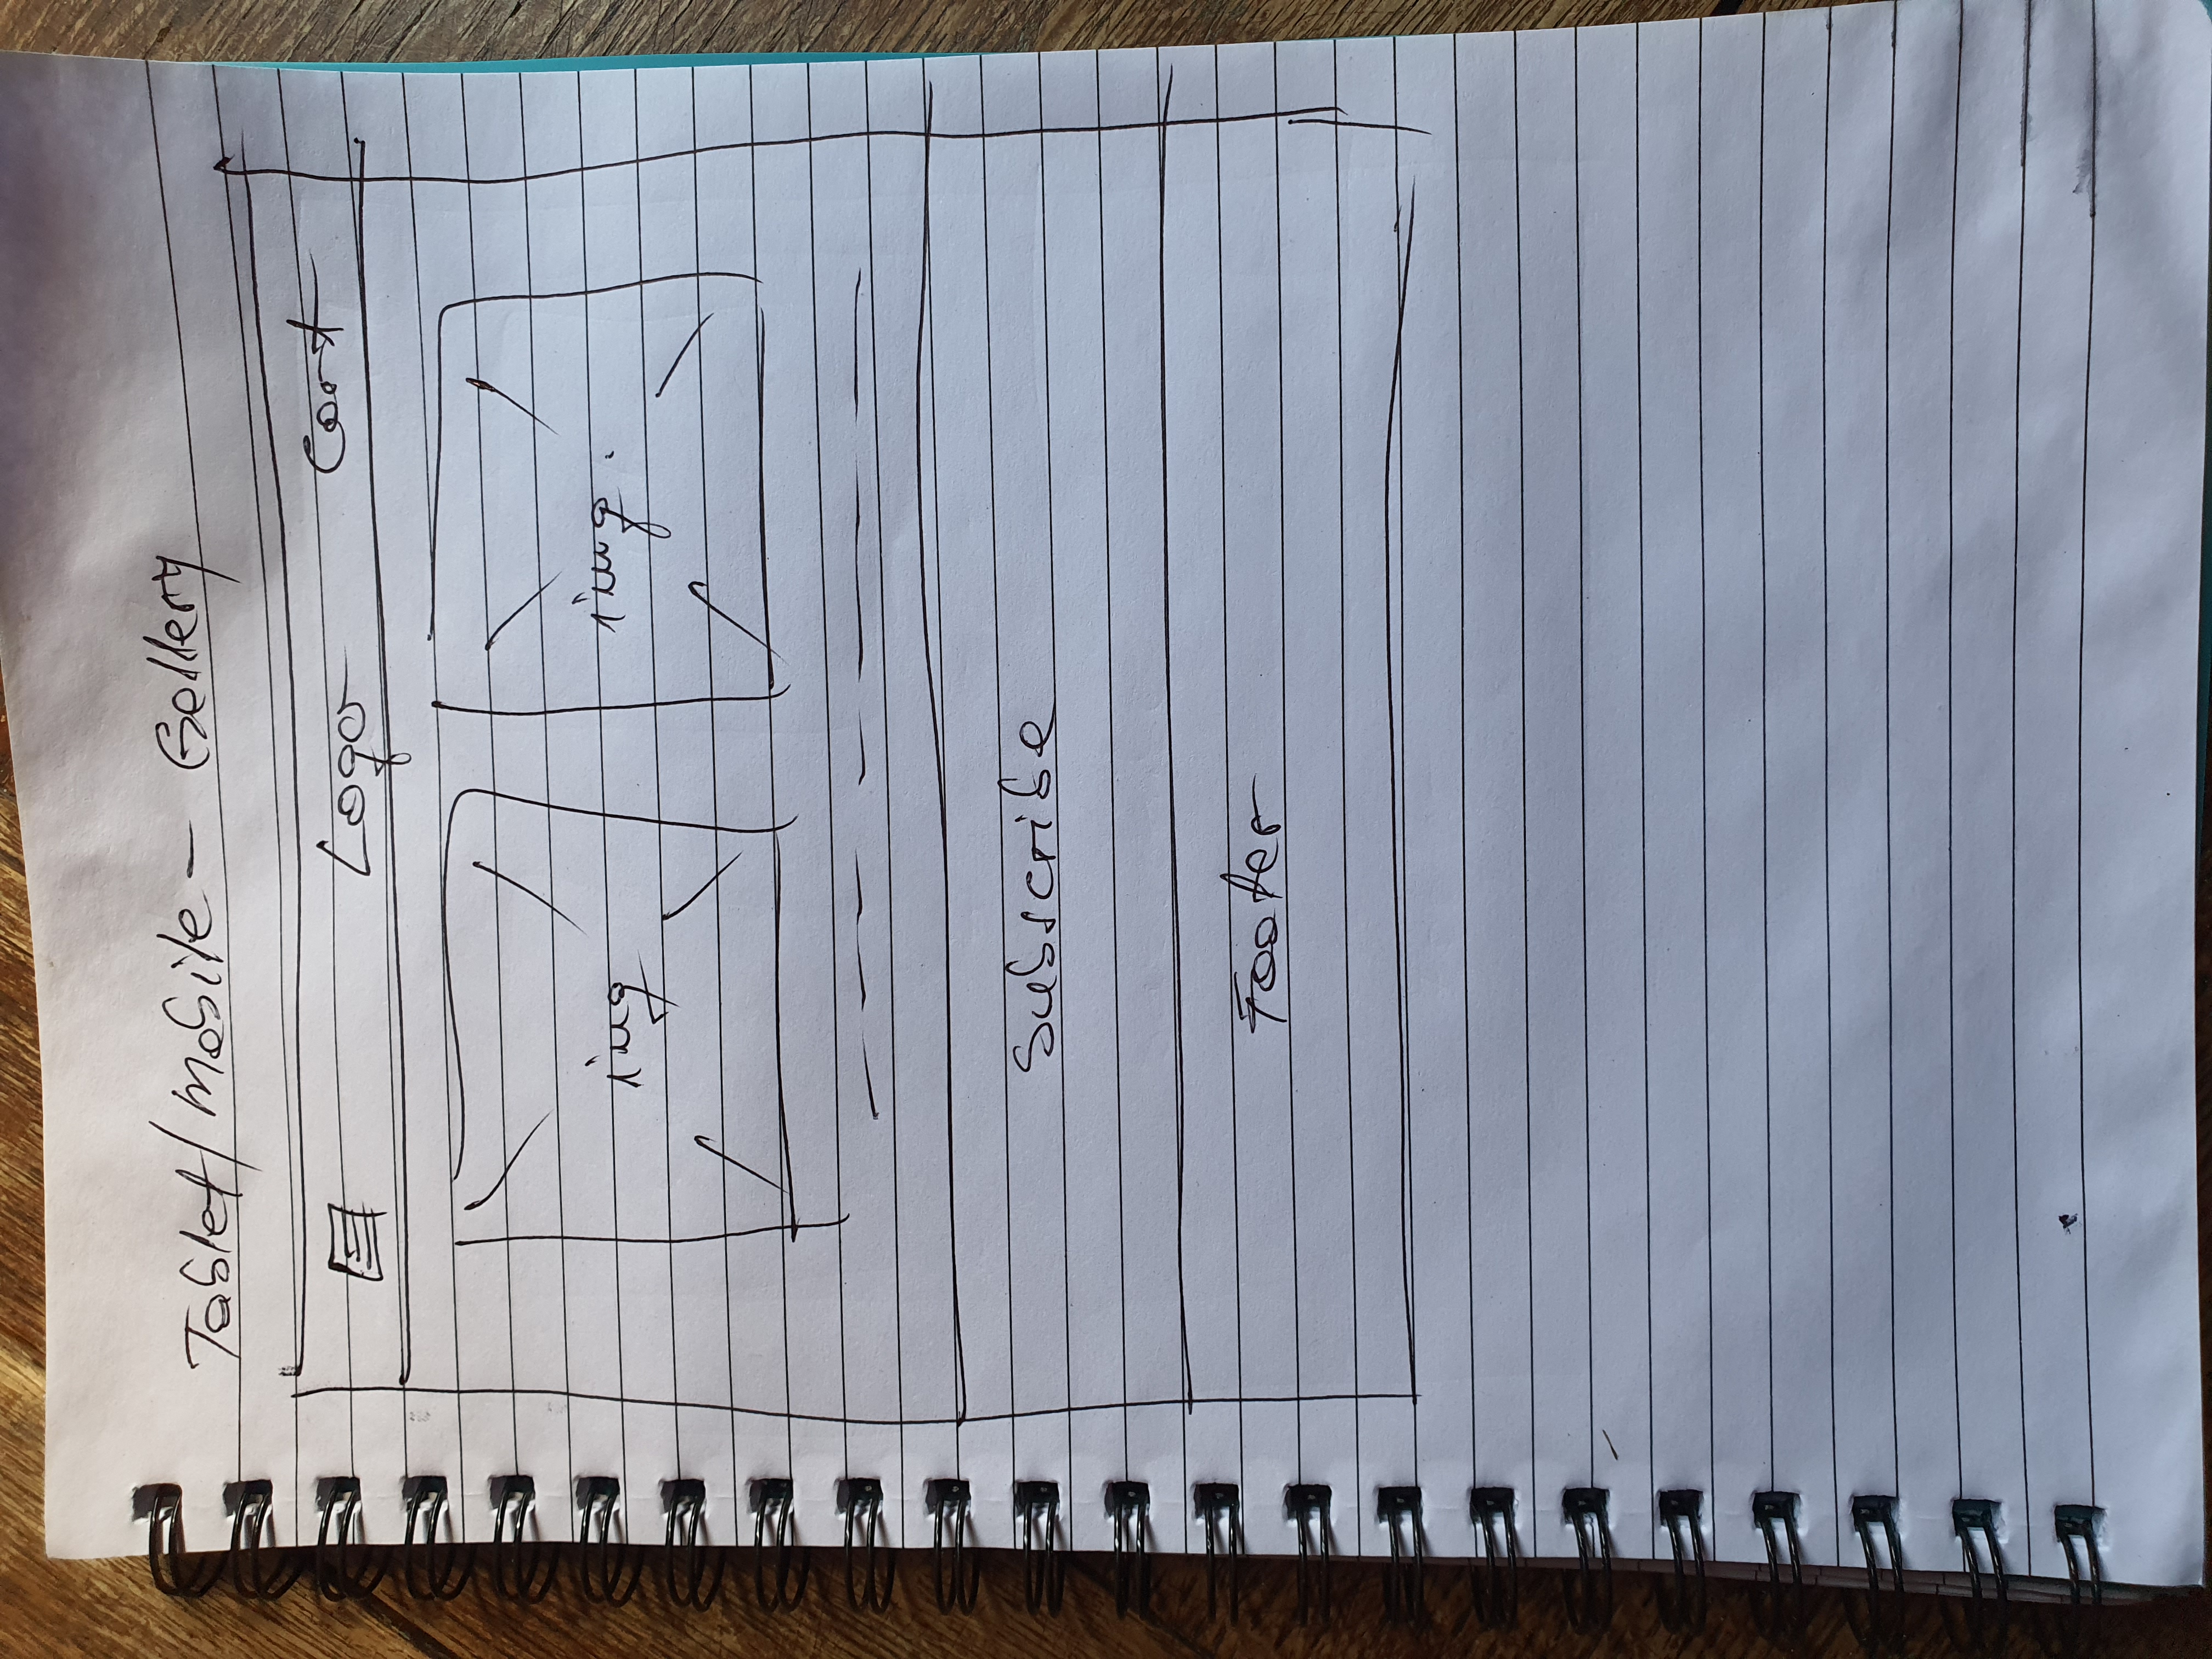 Tablet/Mobile - Gallery
Logo Cart
img img.
Subscribe
Footer